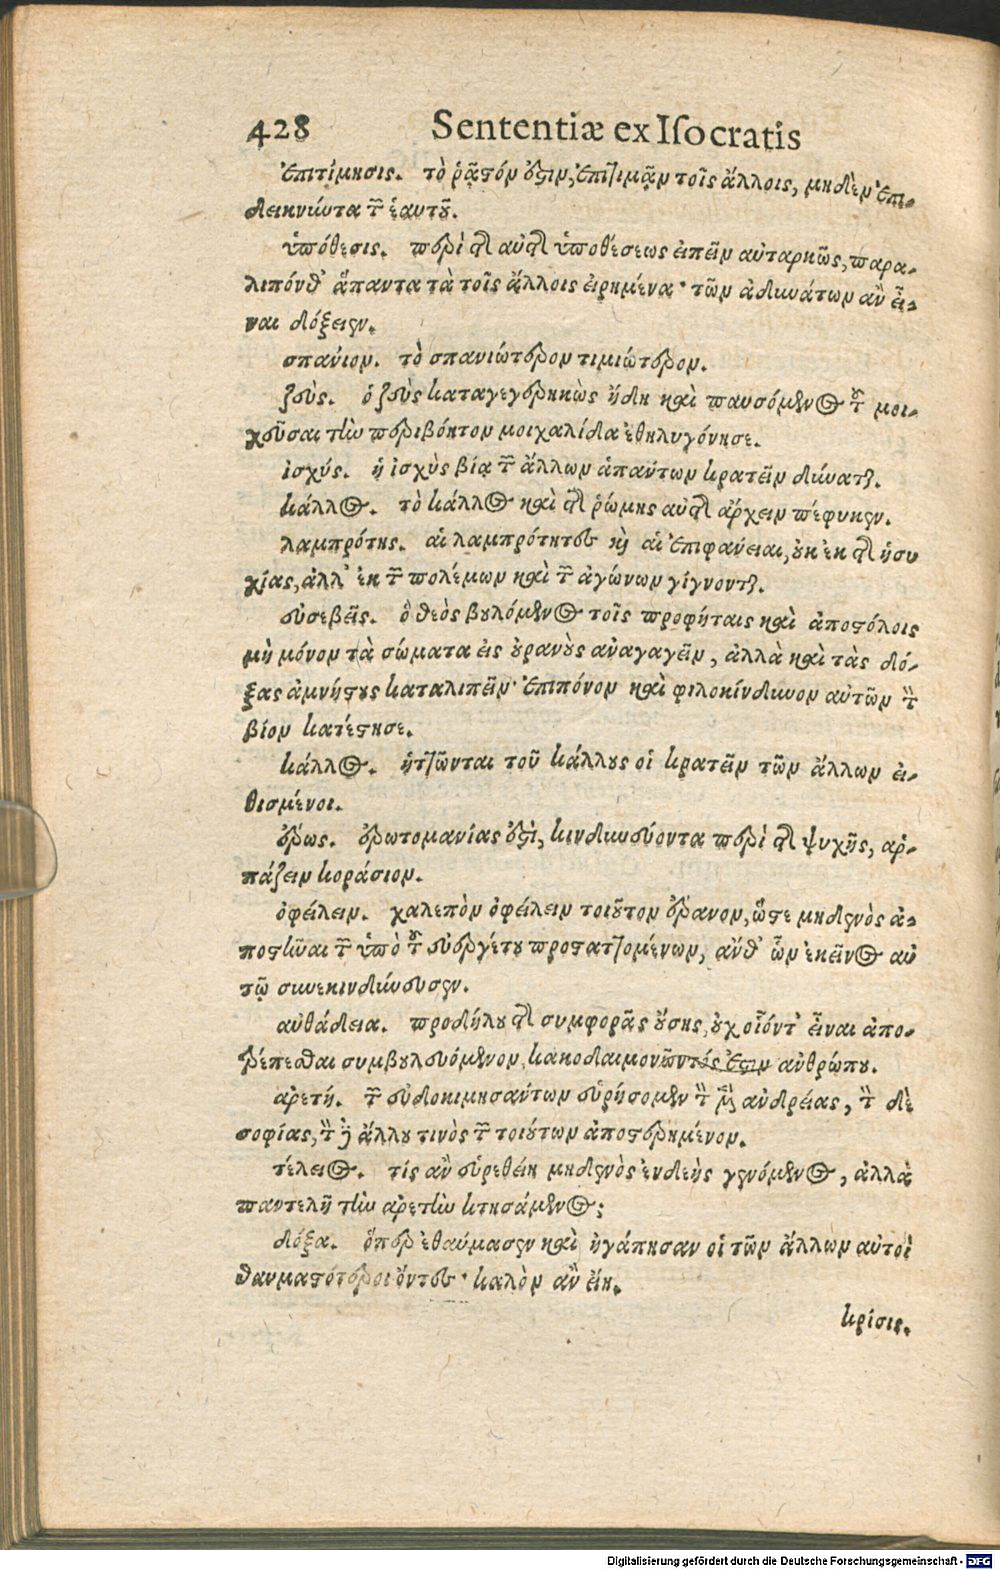 428 Sententiæ ex Iſocratis
ἐπιτίμησις. τὸ ῥᾷστόν ἐστιν, ἐπιτιμᾷν τοῖς ἄλλοις, μηδὲν ἐπι-
δεικνύντα τῶν ἑαυτοῦ.
ὑπόθεσις. περὶ τῆς αὐτῆς ὑποθέσεως εἰπεῖν αὐταρκῶς, παρα-
λιπόνθ' ἅπαντα τὰ τοῖς ἄλλοις εἰρημένα· τῶν ἀδυνάτων ἂν εἶ-
ναι δόξειεν.
σπάνιον. τὸ σπανιώτερον τιμιώτερον.
ζεύς. ὁ ζεὺς καταγεγερηκὼς ἤδη καὶ παυσόμενος τοῦ μοι-
χεῦσαι τὴν περιβόητον μοιχαλίδα ἐθηλυγόνησε.
ἰσχύς. ἡ ἰσχὺς βίᾳ τῶν ἄλλων ἁπάντων κρατεῖν δύναται.
κάλλος. τὸ κάλλος καὶ τῆς ῥώμης αὐτῆς ἄρχειν πέφυκεν.
λαμπρότης. αἱ λαμπρότητες καὶ αἱ ἐπιφάνειαι, οὐκ ἐκ τῆς ἡσυ
χίας, ἀλλ' ἐκ τῶν πολέμων καὶ τῶν ἀγώνων γίγνονται.
εὐσεβεῖς. ὁ θεὸς βουλόμενος τοῖς προφήταις καὶ ἀποστόλοις
μὴ μόνον τὰ σώματα εἰς οὐρανοὺς ἀναγαγεῖν, ἀλλὰ καὶ τὰς δό-
ξας ἀμνήστους καταλιπεῖν· ἐπιπόνον καὶ φιλοκίνδυνον αὐτῶν τὸν
βίον κατέστησε.
κάλλος. ἡττῶνται τοῦ κάλλους οἱ κρατεῖν τῶν ἄλλων εἰ-
θισμένοι.
ἔρως. ἐρωτομανίας ἐστὶ, κινδυνεύοντα περὶ τῆς ψυχῆς, ἁρ-
πάζειν κοράσιον.
ὀφείλειν. χαλεπὸν ὀφείλειν τοιοῦτον ἔρανον, ὥστε μηδενὸς ἀ-
ποστῆναι τῶν ὑπὸ τοῦ εὐεργέτου προσταττομένων, ἀνθ' ὧν ἐκεῖνος αὐ
τῷ συνεκινδύνευσεν.
αὐθάδεια. προδήλου τῆς συμφορᾶς οὔσης, οὐχ οἷόντ' εἶναι ἀπο-
τρέπεσθαι συμβουλευόμενον, κακοδαιμονῶντός ἐστιν ἀνθρώπου.
ἀρετή. τῶν εὐδοκιμησάντων εὑρήσομεν τὸν μὲν ἀνδρείας, τὸν δὲ
σοφίας, τὸν δ' ἄλλου τινὸς τῶν τοιούτων ἀπεστερημένον.
τέλειος. τίς ἂν εὑρεθείη μηδενὸς ἐνδεὴς γενόμενος, ἀλλὰ
παντελῆ τὴν ἀρετὴν κτησάμενος;
δόξα. ὅπερ ἐθαύμασεν καὶ ἠγάπησαν οἱ τῶν ἄλλων αὐτοὶ
θαυμαστότεροι ὄντες· καλὸν ἂν εἴη.
κρίσις.
Digitalisierung gefördert durch die Deutsche Forschungsgemeinschaft - DFG